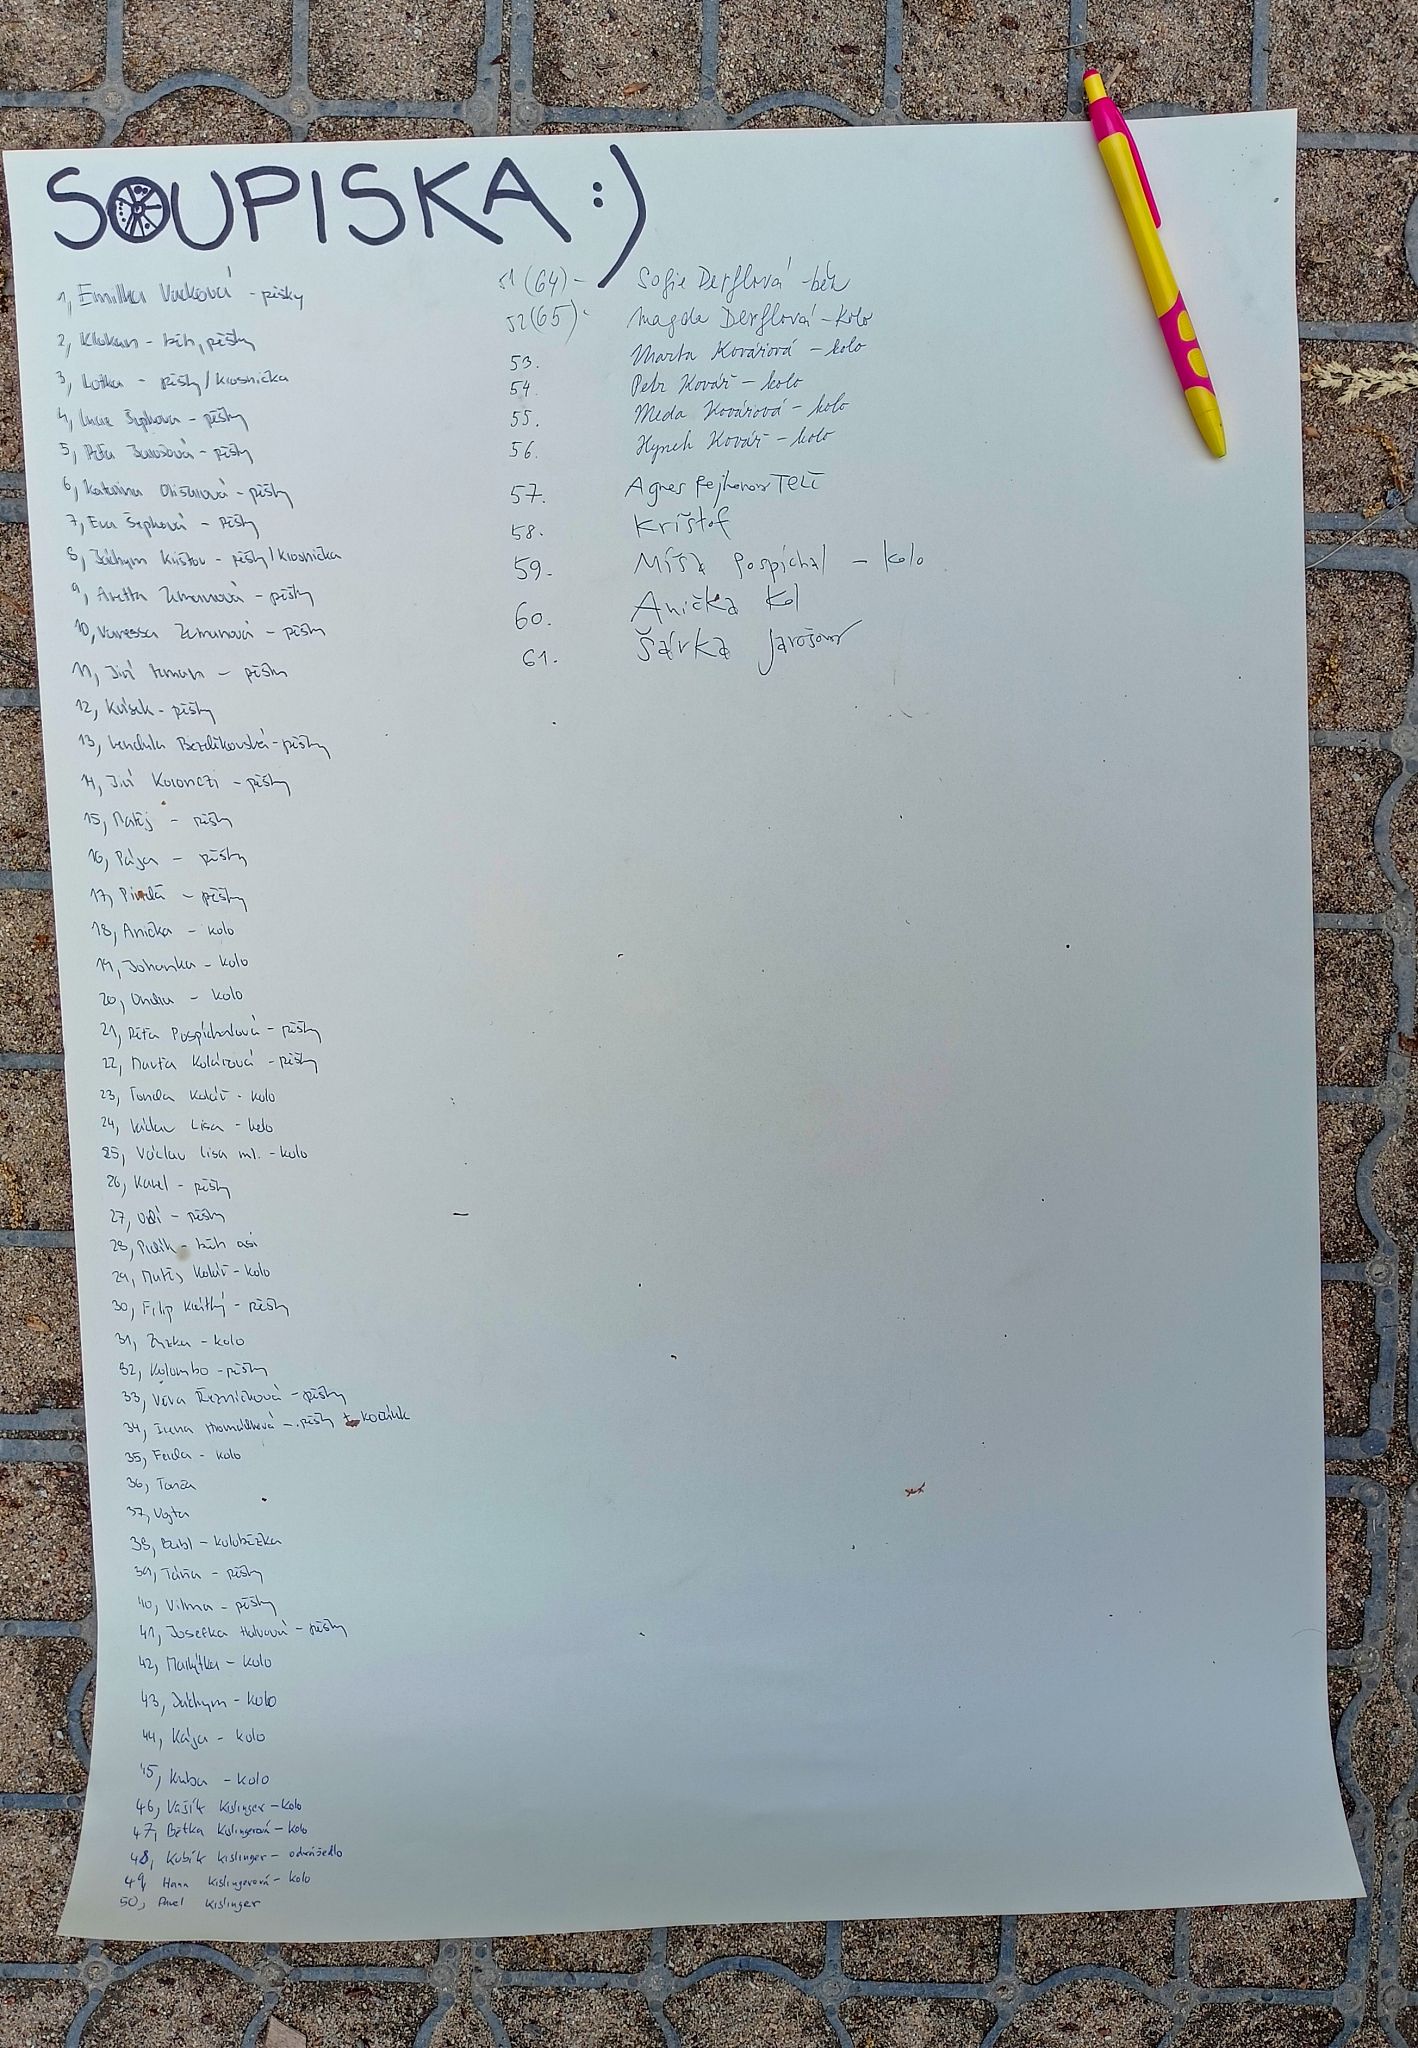 SOUPISKA :)
1, Emilka Vacková - pěšky
2, Klokan - běh, pěšky
3, Lotka - pěšky/krosnička
4, Lucie Šípková - pěšky
5, Péťa - pěšky
6, Kateřina - pěšky
7, Eva Šípková - pěšky
8, Jáchym Krištov - pěšky/krosnička
9, Anetta Zemanová - pěšky
10, Vanessa Zemanová - pěšky
11, Jiří Zeman - pěšky
12, - pěšky
13, Vendula Bezděkovská - pěšky
14, Jiří Koronczi - pěšky
15, Matěj - pěšky
16, Pája - pěšky
17, - pěšky
18, Anička - kolo
19, Johanka - kolo
20, Ondra - kolo
21, Péťa Pospíchalová - pěšky
22, Marta Kolářová - pěšky
23, Tonda Kolář - kolo
24, Václav Lisa - kolo
25, Václav Lisa ml. - kolo
26, Karel - pěšky
27, - pěšky
28, - běh asi
29, Matěj Kolář - kolo
30, Filip - pěšky
31, Zuzka - kolo
32, Kolombo - pěšky
33, Věra Řezníčková - pěšky
34, Irena Hromádková - pěšky + kočárek
35, Ferda - kolo
36, Tonča
37, Vojta
38, Bubl - koloběžka
39, Táňa - pěšky
40, Vilma - pěšky
41, Josefka - pěšky
42, Markétka - kolo
43, Jáchym - kolo
44, Kája - kolo
45, Kuba - kolo
46, Vašík Kislinger - kolo
47, Bětka Kislingerová - kolo
48, Kubík Kislinger - odrážedlo
49, Hana Kislingerová - kolo
50, Pavel Kislinger
51 (64) - Sofie Derflová - běh
52 (65) - Magda Derflová - kolo
53. Marta Kovářová - kolo
54. Petr Kovář - kolo
55. Meda Kovářová - kolo
56. Hynek Kovář - kolo
57. Agnes
58. Krištof
59. Míša Pospíchal - kolo
60. Anička Kol
61. Šárka Jarošová